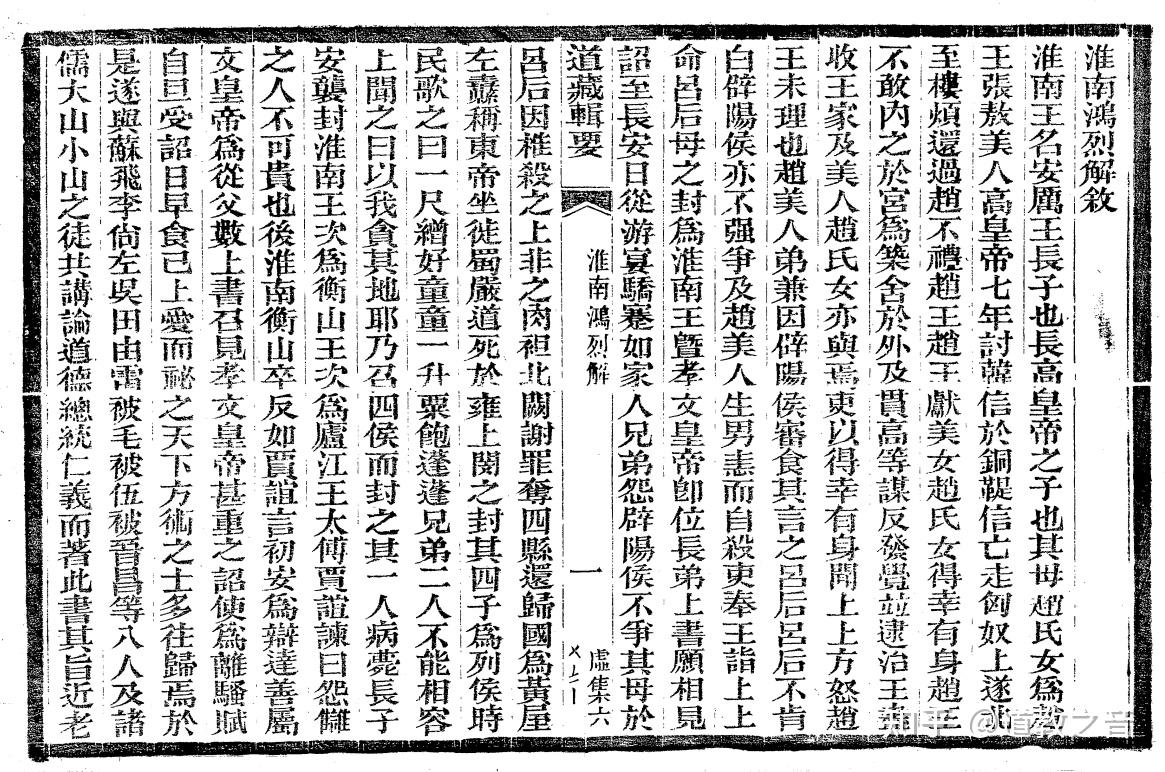 淮南鴻烈解敘
淮南王名安厲王長子也長高皇帝之子也其母趙氏女為趙
王張敖美人高皇帝七年討韓信於銅鞮信亡走匈奴上遂北
至樓煩還過趙不禮趙王趙王獻美女趙氏女得幸有身趙王
不敢內之於宮為築舍於外及貫高等謀反發覺並逮治王盡
收王家及美人趙氏女亦與焉吏以得幸有身聞上上方怒趙
王未理也趙美人弟兼因辟陽侯審食其言之呂后呂后不肯
白辟陽侯亦不强爭及趙美人生男恚而自殺吏奉王詣上上
命呂后母之封為淮南王曁孝文皇帝卽位長弟上書願相見
詔至長安日從游宴驕蹇如家人兄弟怨辟陽侯不爭其母於
道藏輯要
淮南鴻烈解
一
虛集六
呂后因椎殺之上非之肉袒北闕謝罪奪四縣還歸國為黃屋
左纛稱東帝坐徙蜀嚴道死於雍上閔之封其四子為列侯時
民歌之曰一尺繒好童童一升粟飽蓬蓬兄弟二人不能相容
上聞之曰以我貪其地耶乃召四侯而封之其一人病薨長子
安襲封淮南王次為衡山王次為廬江王太傅賈誼諫曰怨讎
之人不可貴也後淮南衡山卒反如賈誼言初安為辯達善屬
文皇帝為從父數上書召見孝文皇帝甚重之詔使為離騷賦
自旦受詔日早食已上愛而祕之天下方術之士多往歸焉於
是遂與蘇飛李尙左吳田由雷被毛被伍被晉昌等八人及諸
儒大山小山之徒共講論道德總統仁義而著此書其旨近老
知乎 @道教之音